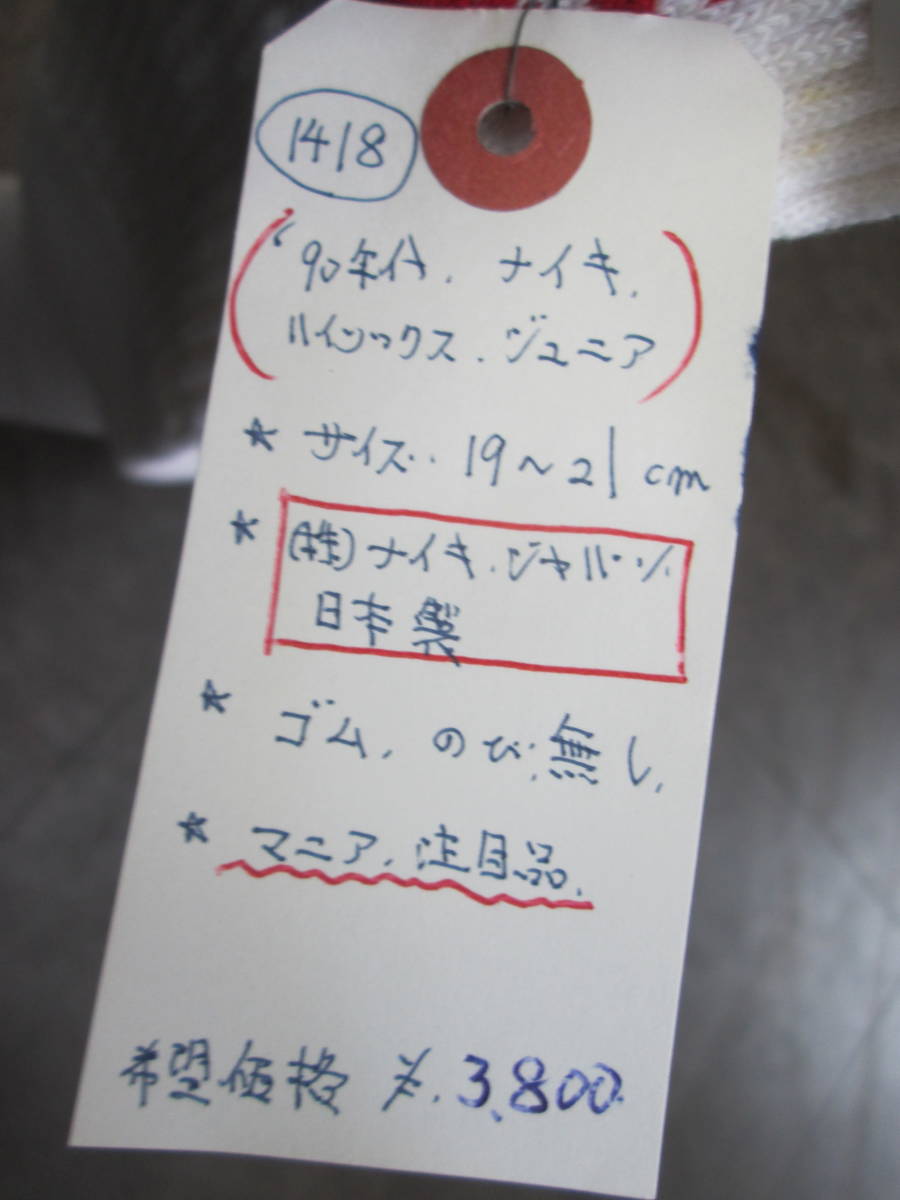 1418
'90年代. ナイキ.
ハイソックス. ジュニア
* サイズ.. 19~21cm
* (株)ナイキ.ジャパン
日本製
* ゴム. のび.無し.
* マニア. 注目品.
希望価格 ¥. 3,800